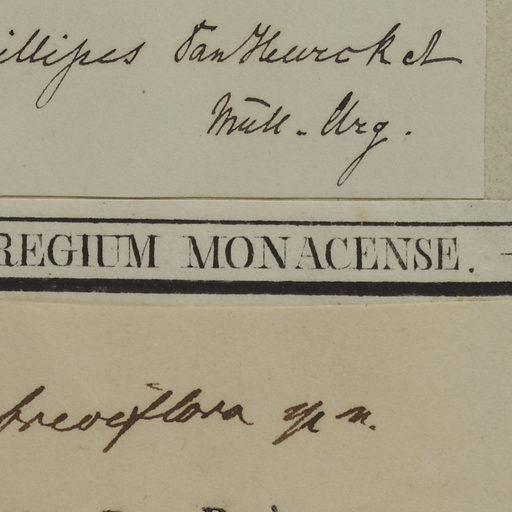 illipes Van Heurck et
Müll. Arg.
REGIUM MONACENSE.
breviflora sp n.